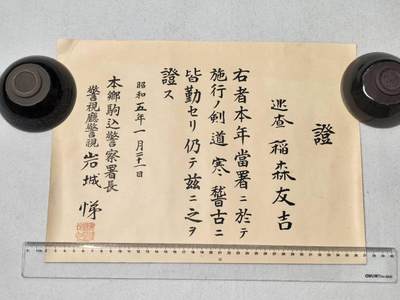 證
巡査 稲森友吉
右者本年當署ニ於テ
施行ノ剣道寒稽古ニ
皆勤セリ仍テ茲ニ之ヲ
證ス
昭和五年一月三十一日
本郷駒込警察署長
警視廳警視 岩城悌